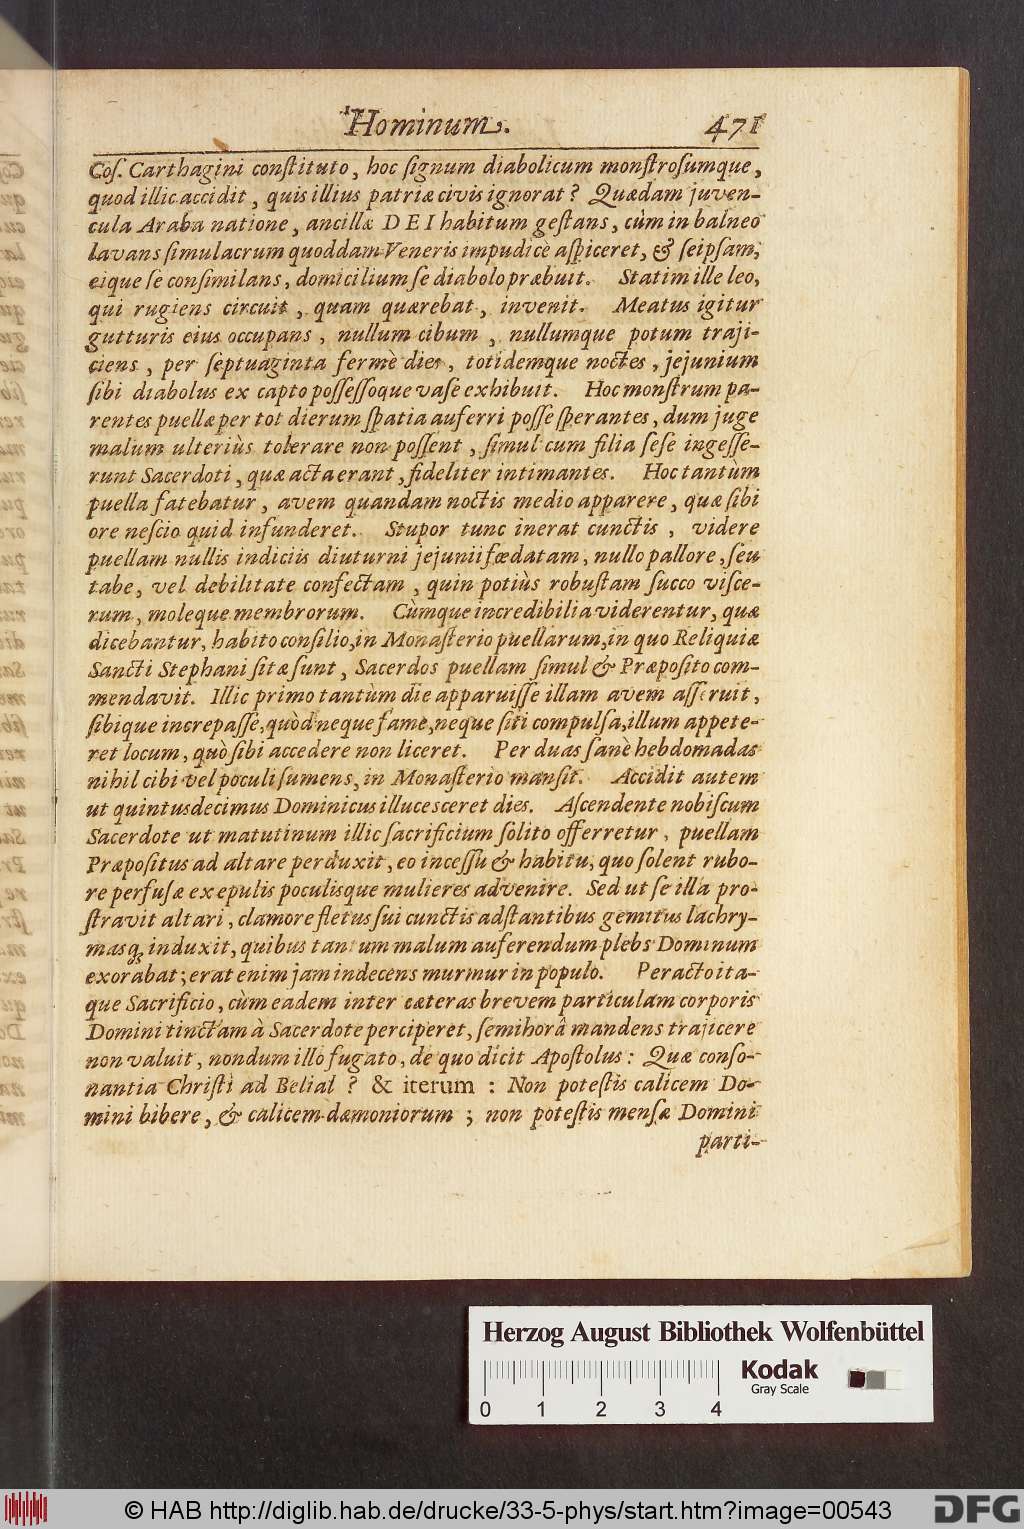 Hominum. 471
Coſ. Carthagini conſtituto, hoc ſignum diabolicum monſtroſumque,
quod illic accidit, quis illius patriæ civis ignorat? Quædam juven-
cula Araba natione, ancillæ DEI habitum geſtans, cùm in balneo
lavans ſimulacrum quoddam Veneris impudicè aſpiceret, & ſeipſam,
eique ſe conſimilans, domicilium ſe diabolo præbuit. Statim ille leo,
qui rugiens circuit, quam quærebat, invenit. Meatus igitur
gutturis eius occupans, nullum cibum, nullumque potum traji-
ciens, per ſeptuaginta fermè dies, totidemque noctes, jejunium
ſibi diabolus ex capto poſſeſſoque vaſe exhibuit. Hoc monſtrum pa-
rentes puellæ per tot dierum ſpatia auferri poſſe ſperantes, dum juge
malum ulteriùs tolerare non poſſent, ſimul cum filia ſeſe ingeſſe-
runt Sacerdoti, quæ acta erant, fideliter intimantes. Hoc tantùm
puella fatebatur, avem quandam noctis medio apparere, quæ ſibi
ore neſcio quid infunderet. Stupor tunc inerat cunctis, videre
puellam nullis indiciis diuturni jejunii fœdatam, nullo pallore, ſeu
tabe, vel debilitate confectam, quin potiùs robuſtam ſucco viſce-
rum, moleque membrorum. Cùmque incredibilia viderentur, quæ
dicebantur, habito conſilio, in Monaſterio puellarum, in quo Reliquiæ
Sancti Stephani ſitæ ſunt, Sacerdos puellam ſimul & Præpoſito com-
mendavit. Illic primo tantùm die apparuiſſe illam avem aſſeruit,
ſibique increpaſſe, quòd neque fame, neque ſiti compulſa, illum appete-
ret locum, quò ſibi accedere non liceret. Per duas ſanè hebdomadas
nihil cibi vel poculi ſumens, in Monaſterio manſit. Accidit autem
ut quintusdecimus Dominicus illucesceret dies. Aſcendente nobiſcum
Sacerdote ut matutinum illic ſacrificium ſolito offerretur, puellam
Præpoſitus ad altare perduxit, eo inceſſu & habitu, quo ſolent rubo-
re perfuſæ ex epulis poculisque mulieres advenire. Sed ut ſe illa pro-
ſtravit altari, clamore fletus ſui cunctis adſtantibus gemitus lachry-
masq́ induxit, quibus tantum malum auferendum plebs Dominum
exorabat; erat enim jam indecens murmur in populo. Peracto ita-
que Sacrificio, cùm eadem inter cæteras brevem particulam corporis
Domini tinctam à Sacerdote perciperet, ſemihorâ mandens trajicere
non valuit, nondum illo fugato, de quo dicit Apoſtolus: Quæ conſo-
nantia Chriſti ad Belial? & iterum: Non poteſtis calicem Do-
mini bibere, & calicem dæmoniorum; non poteſtis menſæ Domini
parti-
Herzog August Bibliothek Wolfenbüttel
Kodak
Gray Scale
0 1 2 3 4
© HAB http://diglib.hab.de/drucke/33-5-phys/start.htm?image=00543
DFG